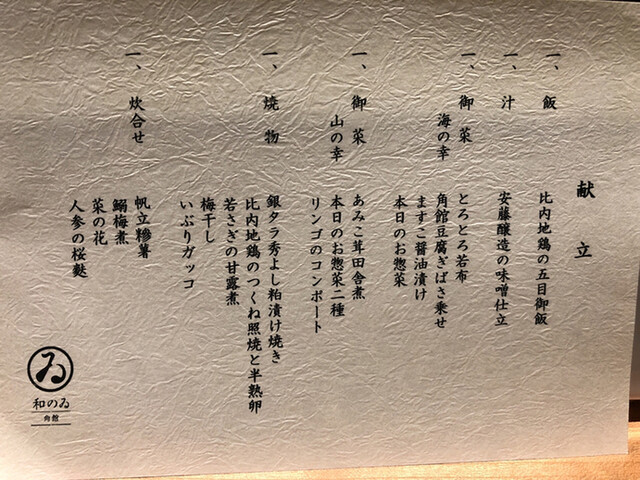 献立
一、飯
比内地鶏の五目御飯
一、汁
安藤醸造の味噌仕立
一、御菜
海の幸
とろとろ若布
角館豆腐ぎばさ乗せ
ますこ醤油漬け
本日のお惣菜
一、御菜
山の幸
あみこ茸田舎煮
本日のお惣菜二種
リンゴのコンポート
一、焼物
銀タラ秀よし粕漬け焼き
比内地鶏のつくね照焼と半熟卵
若さぎの甘露煮
梅干し
いぶりガッコ
一、炊合せ
帆立糝薯
鰯梅煮
菜の花
人参の桜麩
ゐ
和のゐ
角館